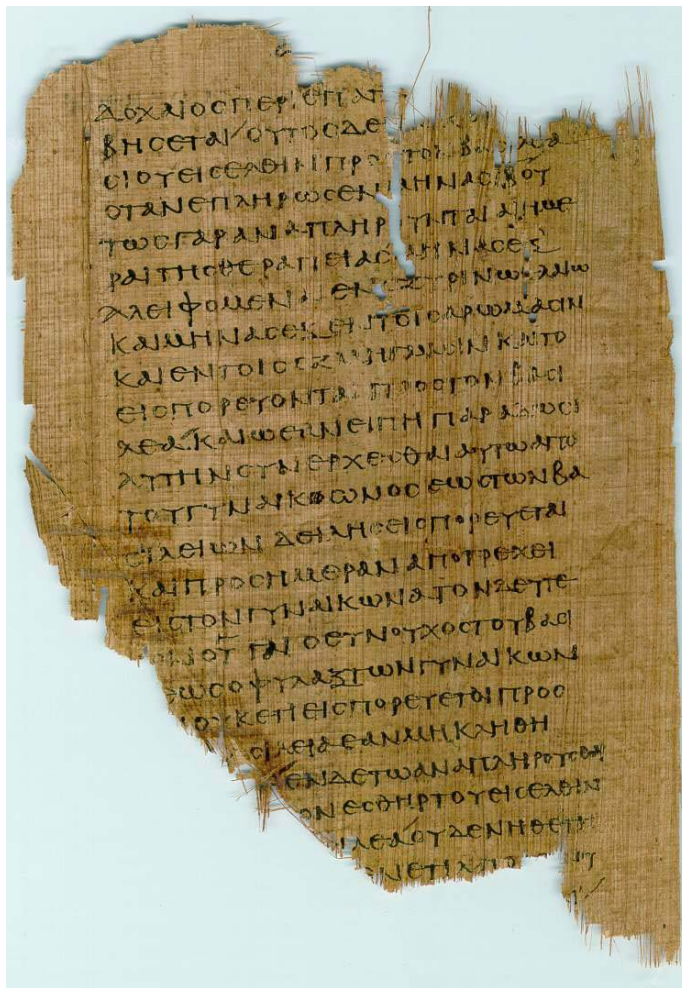 ΔΟΧΑΙΟϹΠΕΡΙΕΠΑΤ
ΒΗϹΕΤΑΙ/ΟΥΤΟϹΔΕ
ϹΙΟΥΕΙϹΕΛΘΙΝΠΡΟ ΤΟΝΒΑϹΙΛΕΑ
ΟΤΑΝΕΠΛΗΡΩϹΕΝ ΜΗΝΑϹΙΒΟΥ
ΤΩϹΓΑΡΑΝΑΠΛΗΡΟΥΝΤΑΙΑΙΗΜΕ
ΡΑΙΤΗϹΘΕΡΑΠΕΙΑϹΜΗΝΑϹΕΞ
ΑΛΕΙΦΟΜΕΝΑΙΕΝΖΜΥΡΙΝΩΕΛΑΙΩ
ΚΑΙΜΗΝΑϹΕΞΕΝΤΟΙϹΑΡΩΜΑϹΙΝ
ΚΑΙΕΝΤΟΙϹΖΜΗΓΜΑϹΙΝΚΑΙΤΟ
ΕΙϹΠΟΡΕΥΟΝΤΑΙΠΡΟϹΤΟΝΒΑϹΙ
ΛΕΑ ΚΑΙΩΕΑΝΕΙΠΗΠΑΡΑΔΩϹΙ
ΑΥΤΗΝϹΥΝΕΡΧΕϹΘΑΙΑΥΤΩΑΠΟ
ΤΟΥΓΥΝΑΙΚΩΝΟϹΕΩϹΤΩΝΒΑ
ϹΙΛΕΙΩΝ ΔΕΙΛΗϹΕΙϹΠΟΡΕΥΕΤΑΙ
ΚΑΙΠΡΟϹΗΜΕΡΑΝΑΠΟΤΡΕΧΕΙ
ΕΙϹΤΟΝΓΥΝΑΙΚΩΝΑΤΟΝΔΕΥΤΕ
ΟΝΟΥ ΓΑΙΟΕΥΝΟΥΧΟϹΤΟΥΒΑϹΙ
ΕΩϹΟΦΥΛΑΞΤΩΝΓΥΝΑΙΚΩΝ
ΟΥΚΕΤΙΕΙϹΠΟΡΕΥΕΤΟΙΠΡΟϹ
ϹΙΛΕΙΑΕΑΝΜΗΚΛΗΘΗ
ΕΝΔΕΤΩΑΝΑΠΛΗΡΟΥϹΘΑΙ
ΟΝΕϹΘΗΡΤΟΥΕΙϹΕΛΘΙΝ
ΙΛΕΑΟΥΔΕΝΗΘΕΤΗ
ΝΕΤΙΛΑΤΟ